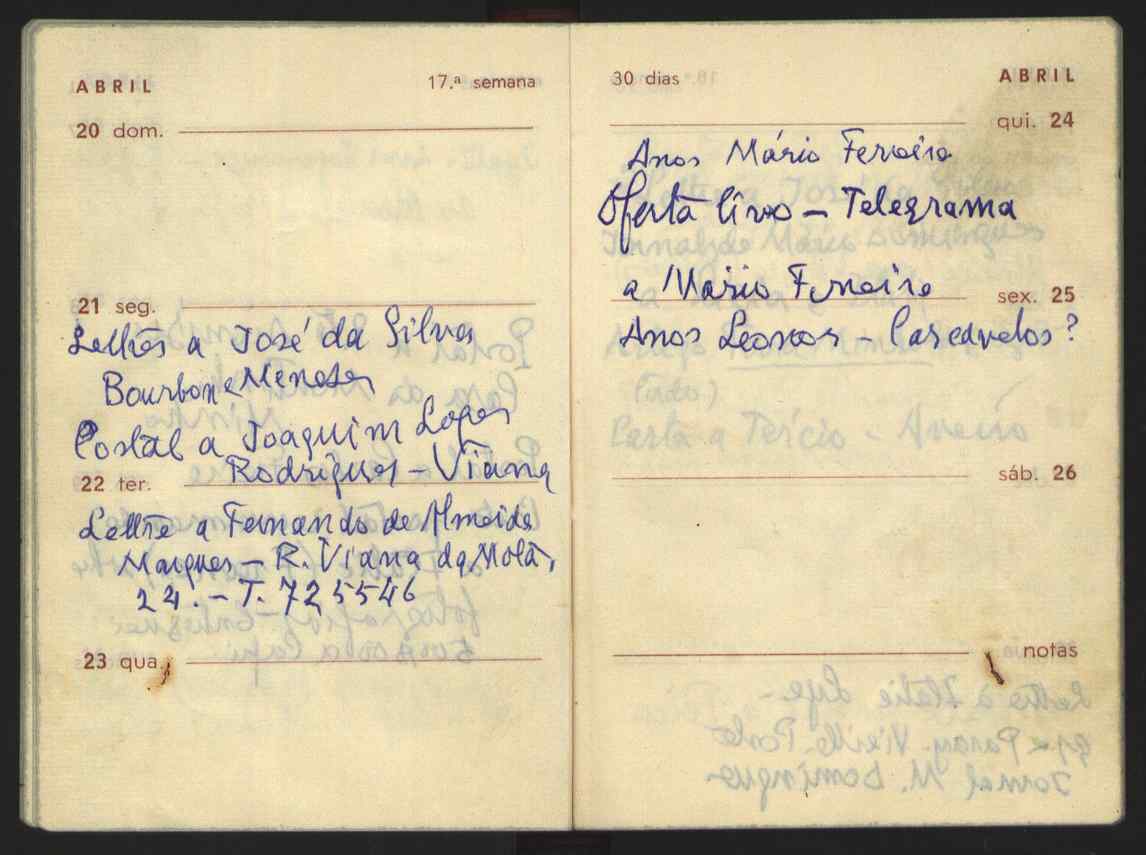 ABRIL 17.ª semana
20 dom.
21 seg.
Lettres a José da Silva
Bourbon e Meneses
Postal a Joaquim Lopes
Rodrigues – Viana
22 ter.
Lettre a Fernando de Almeida
Marques – R. Viana da Mota,
24. – T. 725546
23 qua.
30 dias ABRIL
qui. 24
Anos Mário Ferreira
Oferta livro – Telegrama
a Mário Ferreira
sex. 25
Anos Leonor – Carcavelos?
sáb. 26
notas